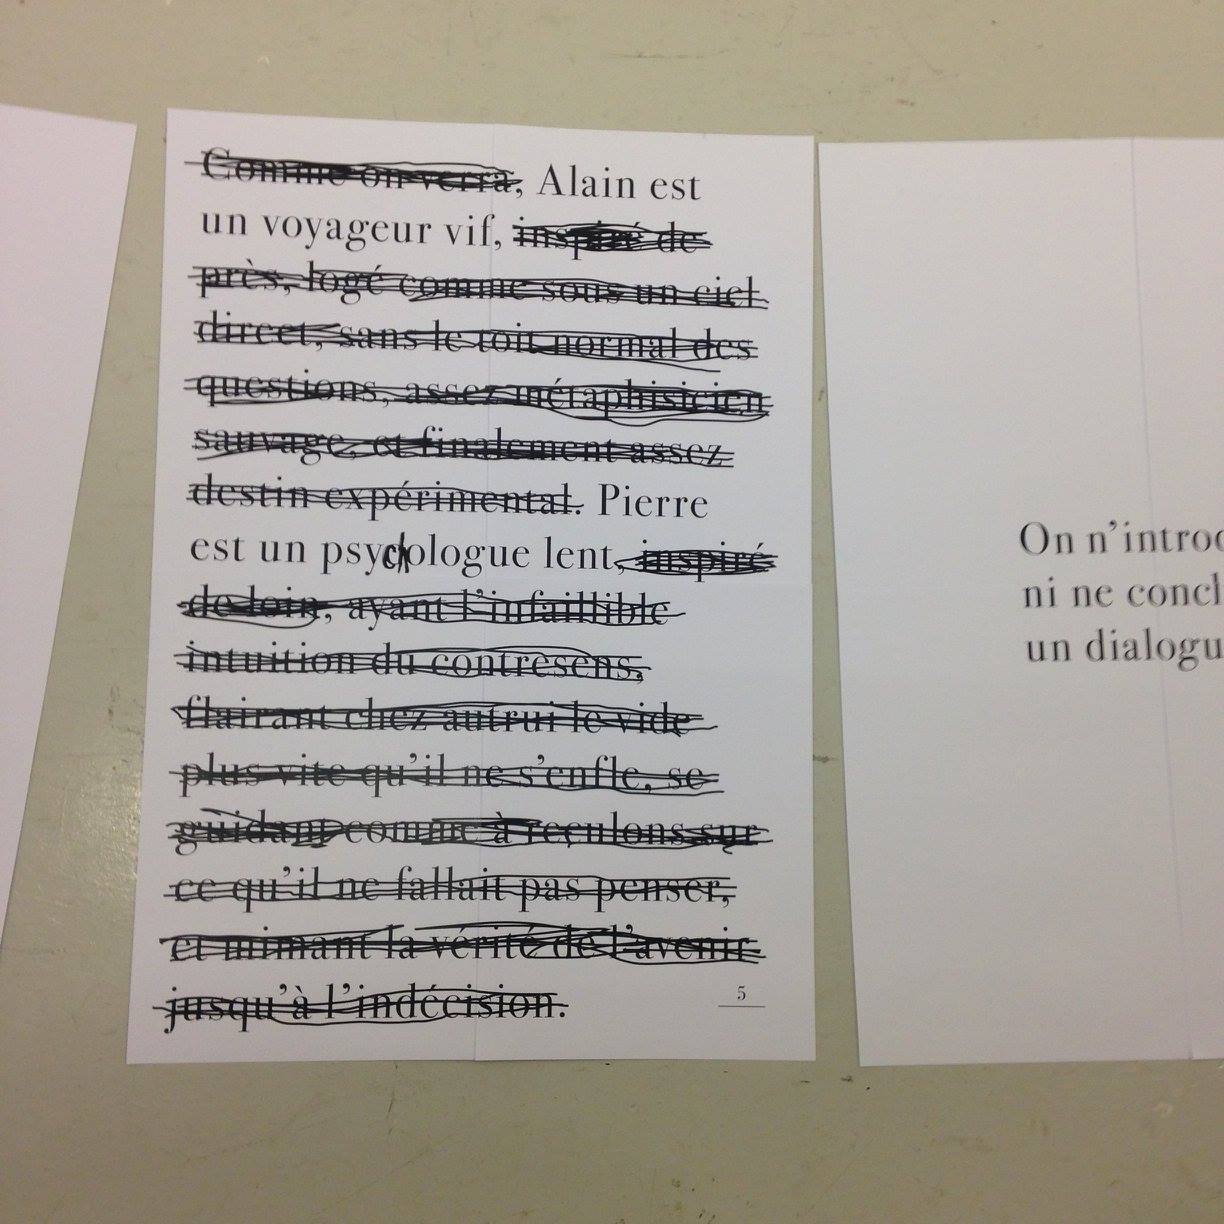 Comme on verra, Alain est
un voyageur vif, inspiré de
près, logé comme sous un ciel
direct, sans le toit normal des
questions, assez métaphisicien
sauvage, et finalement assez
destin expérimental. Pierre
est un psychologue lent, inspiré
de loin, ayant l'infaillible
intuition du contresens,
flairant chez autrui le vide
plus vite qu'il ne s'enfle, se
guidant comme à reculons sur
ce qu'il ne fallait pas penser,
et mimant la vérité de l'avenir
jusqu'à l'indécision.
5
On n'introd
ni ne concl
un dialogu